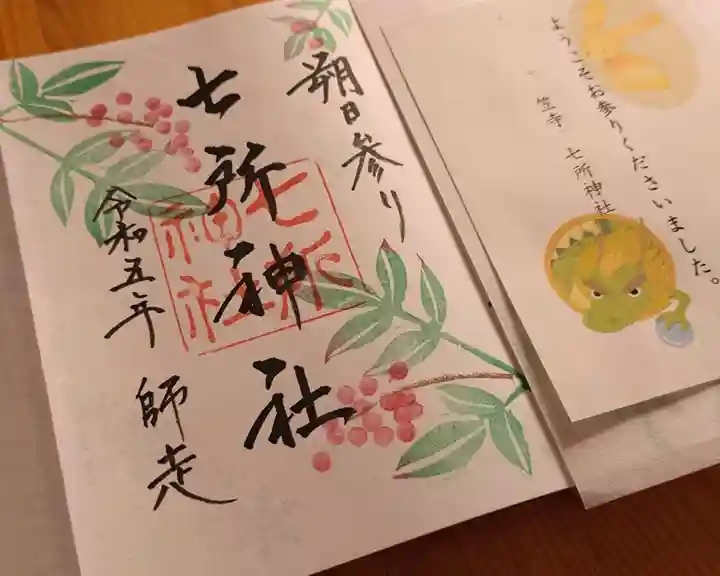 朔日参り
七所神社
七所
神社
令和五年 師走
ようこそお参りくださいました。
笠寺 七所神社